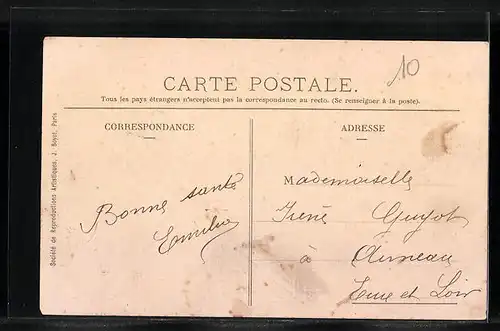 10
CARTE POSTALE.
Tous les pays étrangers n'acceptent pas la correspondance au recto. (Se renseigner à la poste).
CORRESPONDANCE
ADRESSE
Bonne santé
Emilie
Mademoiselle
Irène Guyot
à Auneau
Eure et Loir
Société de Reproductions Artistiques, J. Royer, Paris